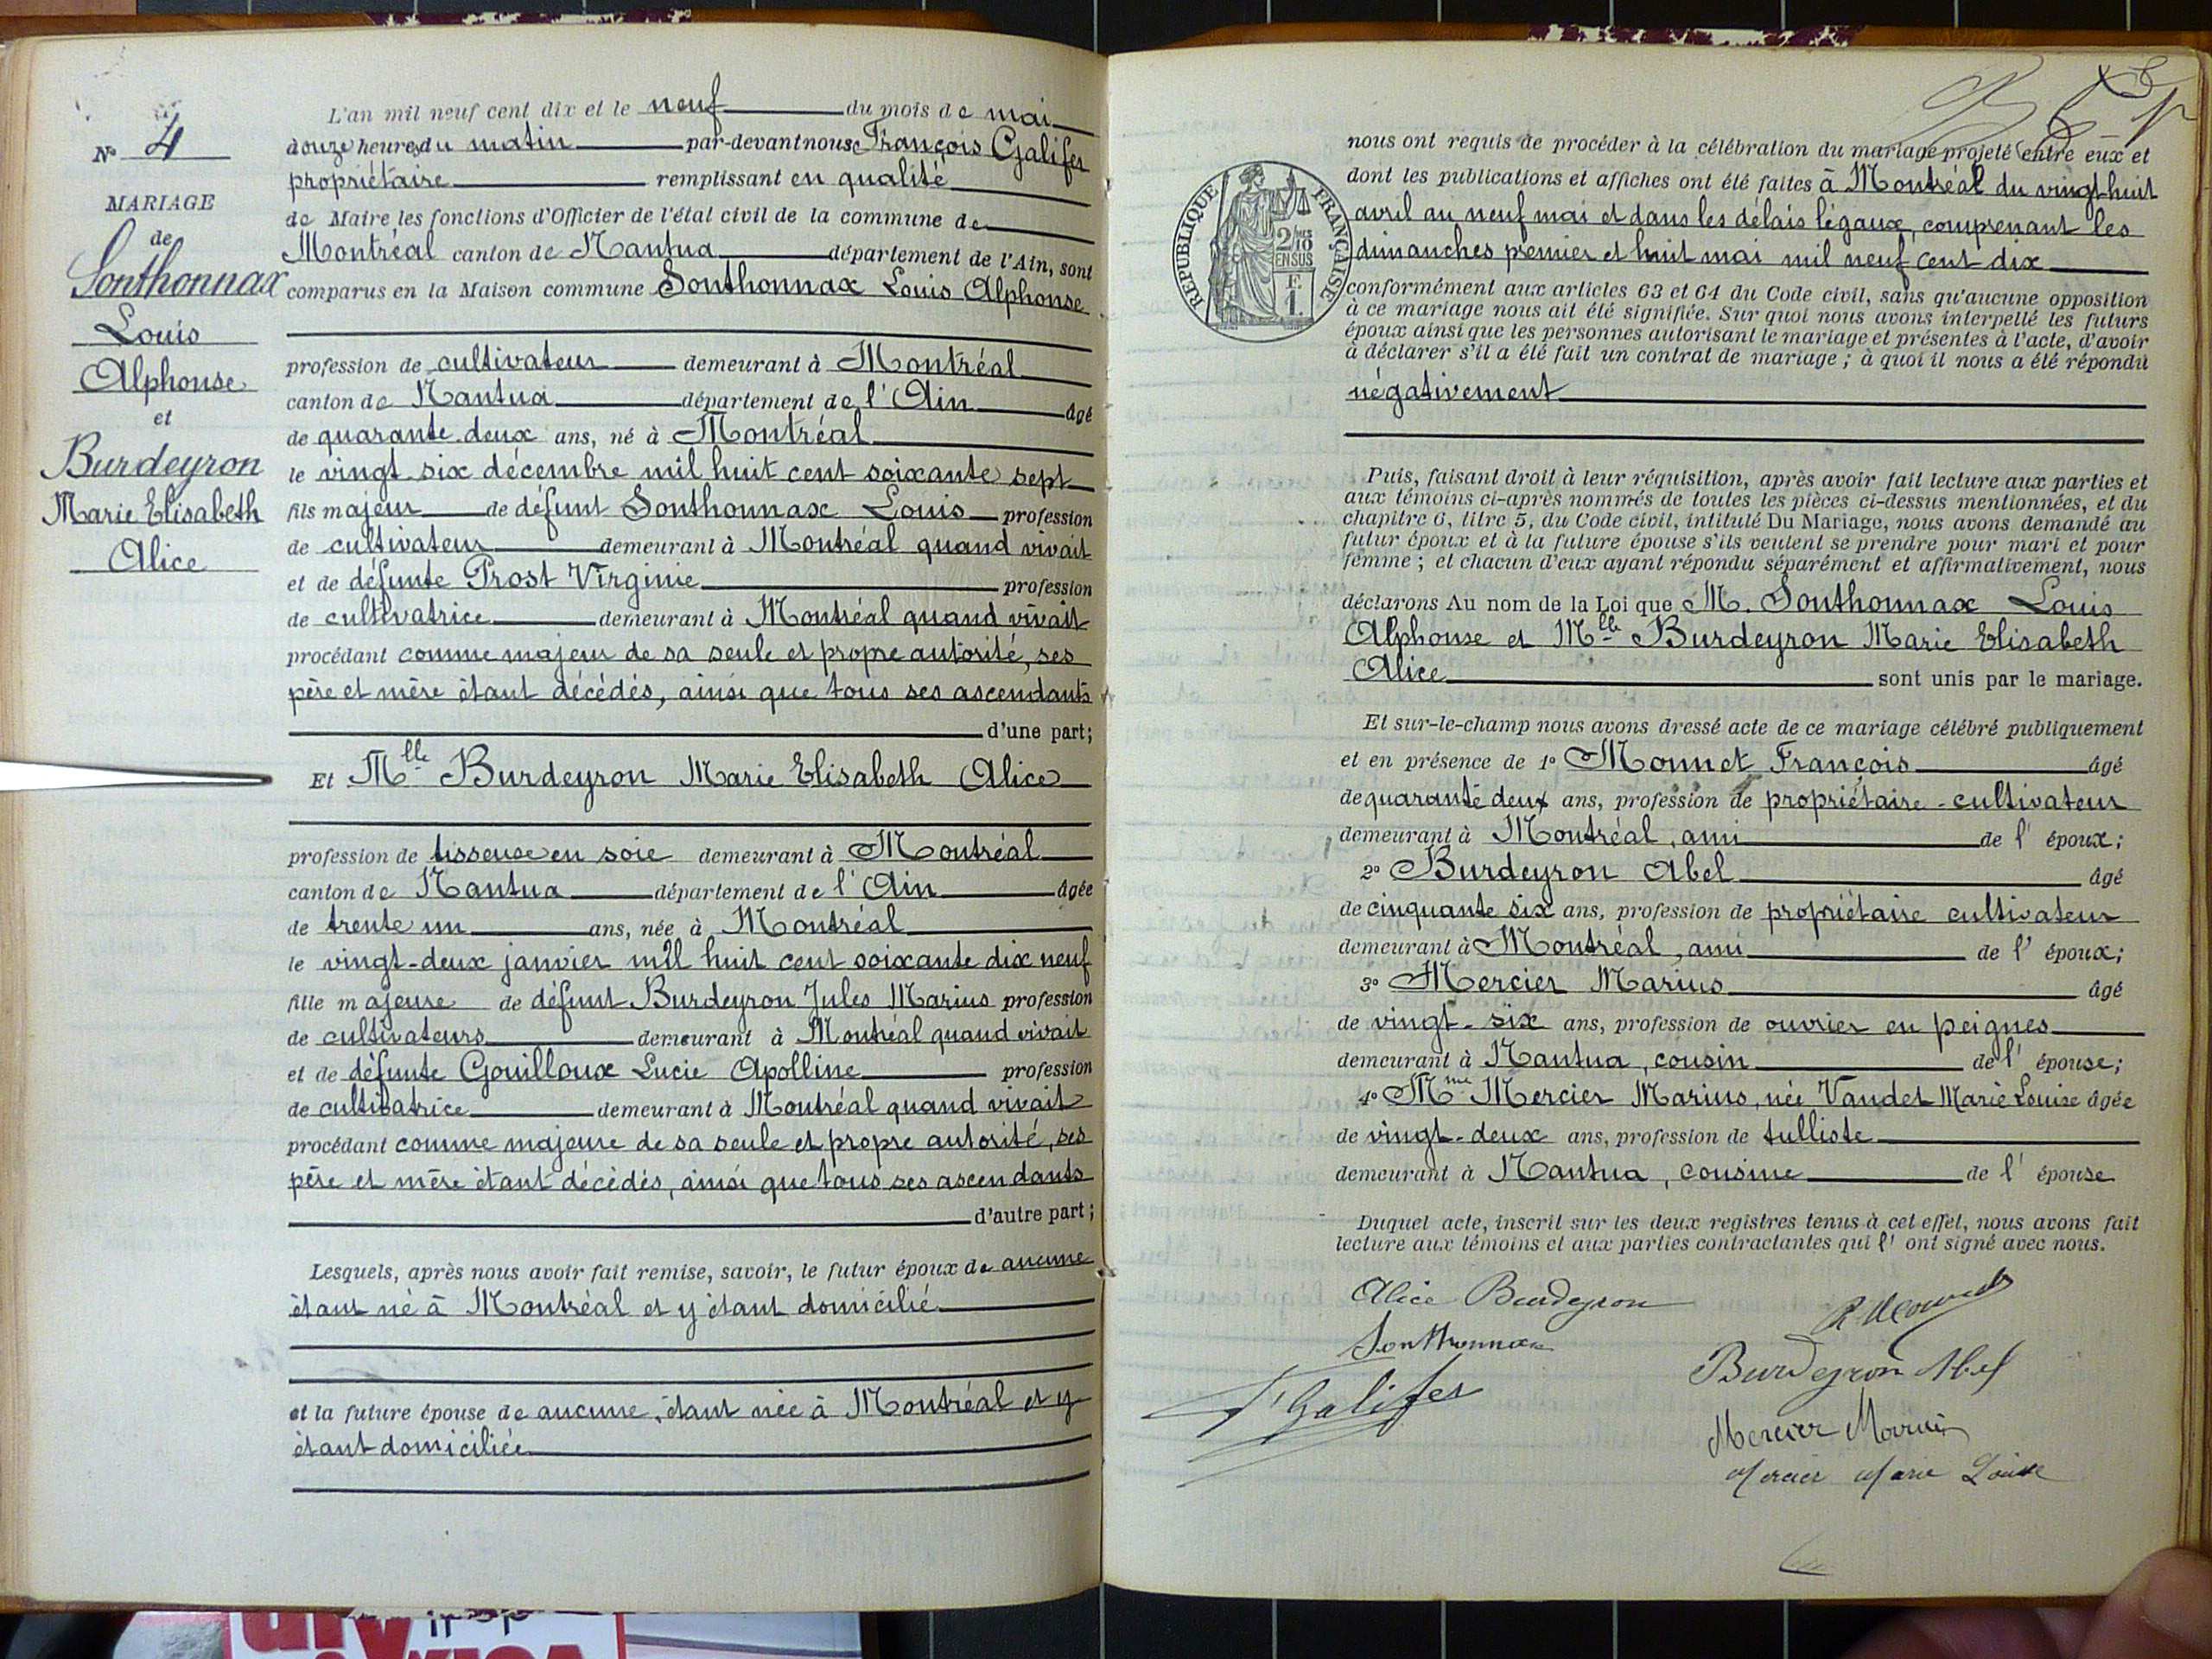 N° 4
MARIAGE
de
Sonthonnax
Louis
Alphonse
et
Burdeyron
Marie Elisabeth
Alice
L'an mil neuf cent dix et le neuf du mois de mai
à onze heures du matin par-devant nous François Galifer
propriétaire remplissant en qualité
de Maire les fonctions d'Officier de l'état civil de la commune de
Montréal canton de Nantua département de l'Ain, sont
comparus en la Maison commune Sonthonnax Louis Alphonse
profession de cultivateur demeurant à Montréal
canton de Nantua département de l'Ain âgé
de quarante-deux ans, né à Montréal
le vingt-six décembre mil huit cent soixante sept
fils majeur de défunt Sonthonnax Louis profession
de cultivateur demeurant à Montréal quand vivait
et de défunte Prost Virginie profession
de cultivatrice demeurant à Montréal quand vivait
procédant comme majeur de sa seule et propre autorité, ses
père et mère étant décédés, ainsi que tous ses ascendants
d'une part;
Et Mlle Burdeyron Marie Elisabeth Alice
profession de tisseuse en soie demeurant à Montréal
canton de Nantua département de l'Ain âgée
de trente un ans, née à Montréal
le vingt-deux janvier mil huit cent soixante dix neuf
fille majeure de défunt Burdeyron Jules Marius profession
de cultivateurs demeurant à Montréal quand vivait
et de défunte Gouilloux Lucie Apolline profession
de cultivatrice demeurant à Montréal quand vivait
procédant comme majeure de sa seule et propre autorité, ses
père et mère étant décédés, ainsi que tous ses ascendants
d'autre part;
Lesquels, après nous avoir fait remise, savoir, le futur époux de aucune
étant né à Montréal et y étant domicilié
et la future épouse de aucune, étant née à Montréal et y
étant domiciliée
nous ont requis de procéder à la célébration du mariage projeté entre eux et
dont les publications et affiches ont été faites à Montréal du vingt-huit
avril au neuf mai et dans les délais légaux, comprenant les
dimanches premier et huit mai mil neuf cent dix
RÉPUBLIQUE FRANÇAISE
2/10 EN SUS
F. 1.
conformément aux articles 63 et 64 du Code civil, sans qu'aucune opposition
à ce mariage nous ait été signifiée. Sur quoi nous avons interpellé les futurs
époux ainsi que les personnes autorisant le mariage et présentes à l'acte, d'avoir
à déclarer s'il a été fait un contrat de mariage ; à quoi il nous a été répondu
négativement
Puis, faisant droit à leur réquisition, après avoir fait lecture aux parties et
aux témoins ci-après nommés de toutes les pièces ci-dessus mentionnées, et du
chapitre 6, titre 5, du Code civil, intitulé Du Mariage, nous avons demandé au
futur époux et à la future épouse s'ils veulent se prendre pour mari et pour
femme ; et chacun d'eux ayant répondu séparément et affirmativement, nous
déclarons Au nom de la Loi que M. Sonthonnax Louis
Alphonse et Mlle Burdeyron Marie Elisabeth
Alice sont unis par le mariage.
Et sur-le-champ nous avons dressé acte de ce mariage célébré publiquement
et en présence de 1° Monnet François âgé
de quarante deux ans, profession de propriétaire-cultivateur
demeurant à Montréal, ami de l'époux;
2° Burdeyron Abel âgé
de cinquante six ans, profession de propriétaire cultivateur
demeurant à Montréal, ami de l'époux;
3° Mercier Marius âgé
de vingt-six ans, profession de ouvrier en peignes
demeurant à Nantua, cousin de l'épouse;
4° Mme Mercier Marius, née Vandel Marie Louise âgée
de vingt-deux ans, profession de tulliste
demeurant à Nantua, cousine de l'épouse
Duquel acte, inscrit sur les deux registres tenus à cet effet, nous avons fait
lecture aux témoins et aux parties contractantes qui l'ont signé avec nous.
Alice Burdeyron
Sonthonnax
F Galifer
Burdeyron Abel
Mercier Marius
Mercier Marie Louise